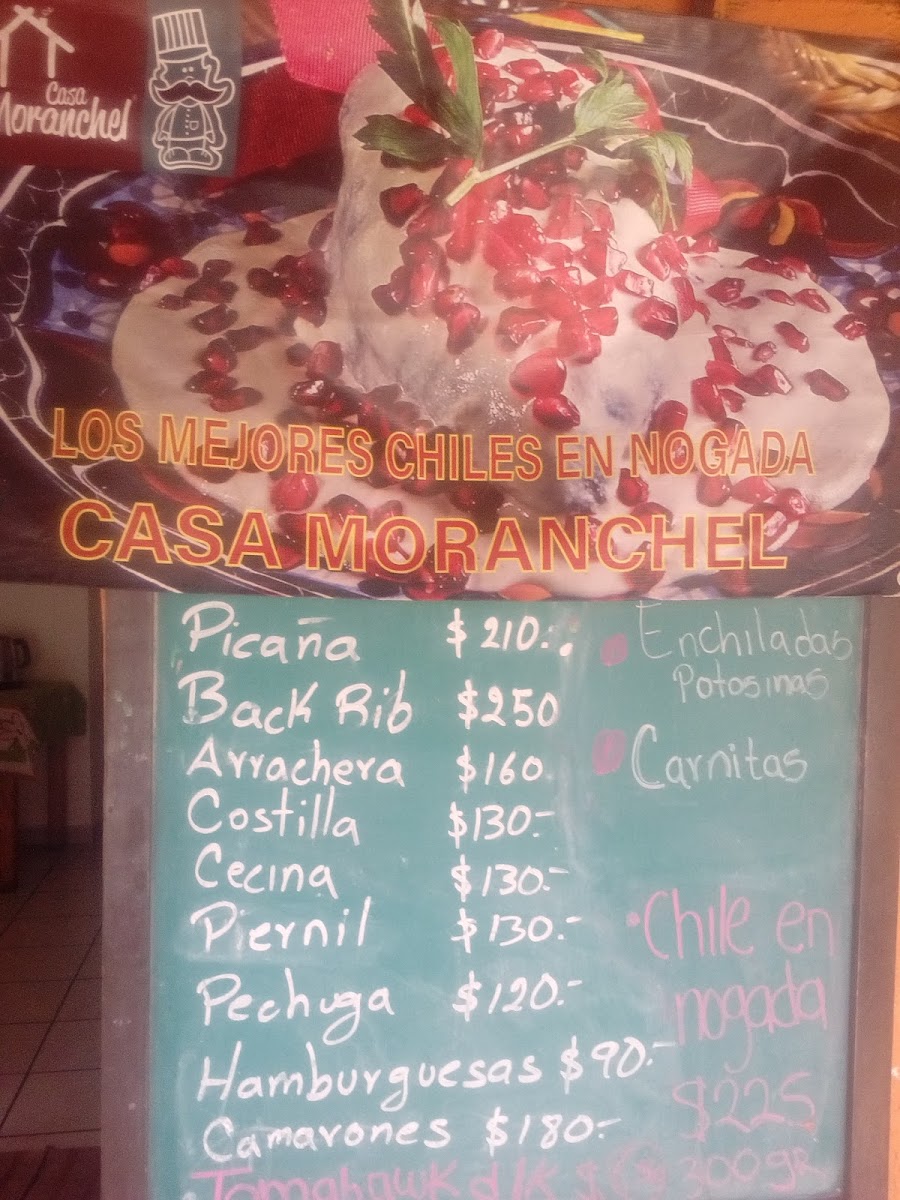 Casa
Moranchel
LOS MEJORES CHILES EN NOGADA
CASA MORANCHEL
Picaña $210.-
Back Rib $250
Arrachera $160
Costilla $130.-
Cecina $130.-
Piernil $130.-
Pechuga $120.-
Hamburguesas $90.-
Camarones $180.-
Tomahawk d 1K $ 300gr
Enchiladas
Potosinas
Carnitas
Chile en
nogada
$225